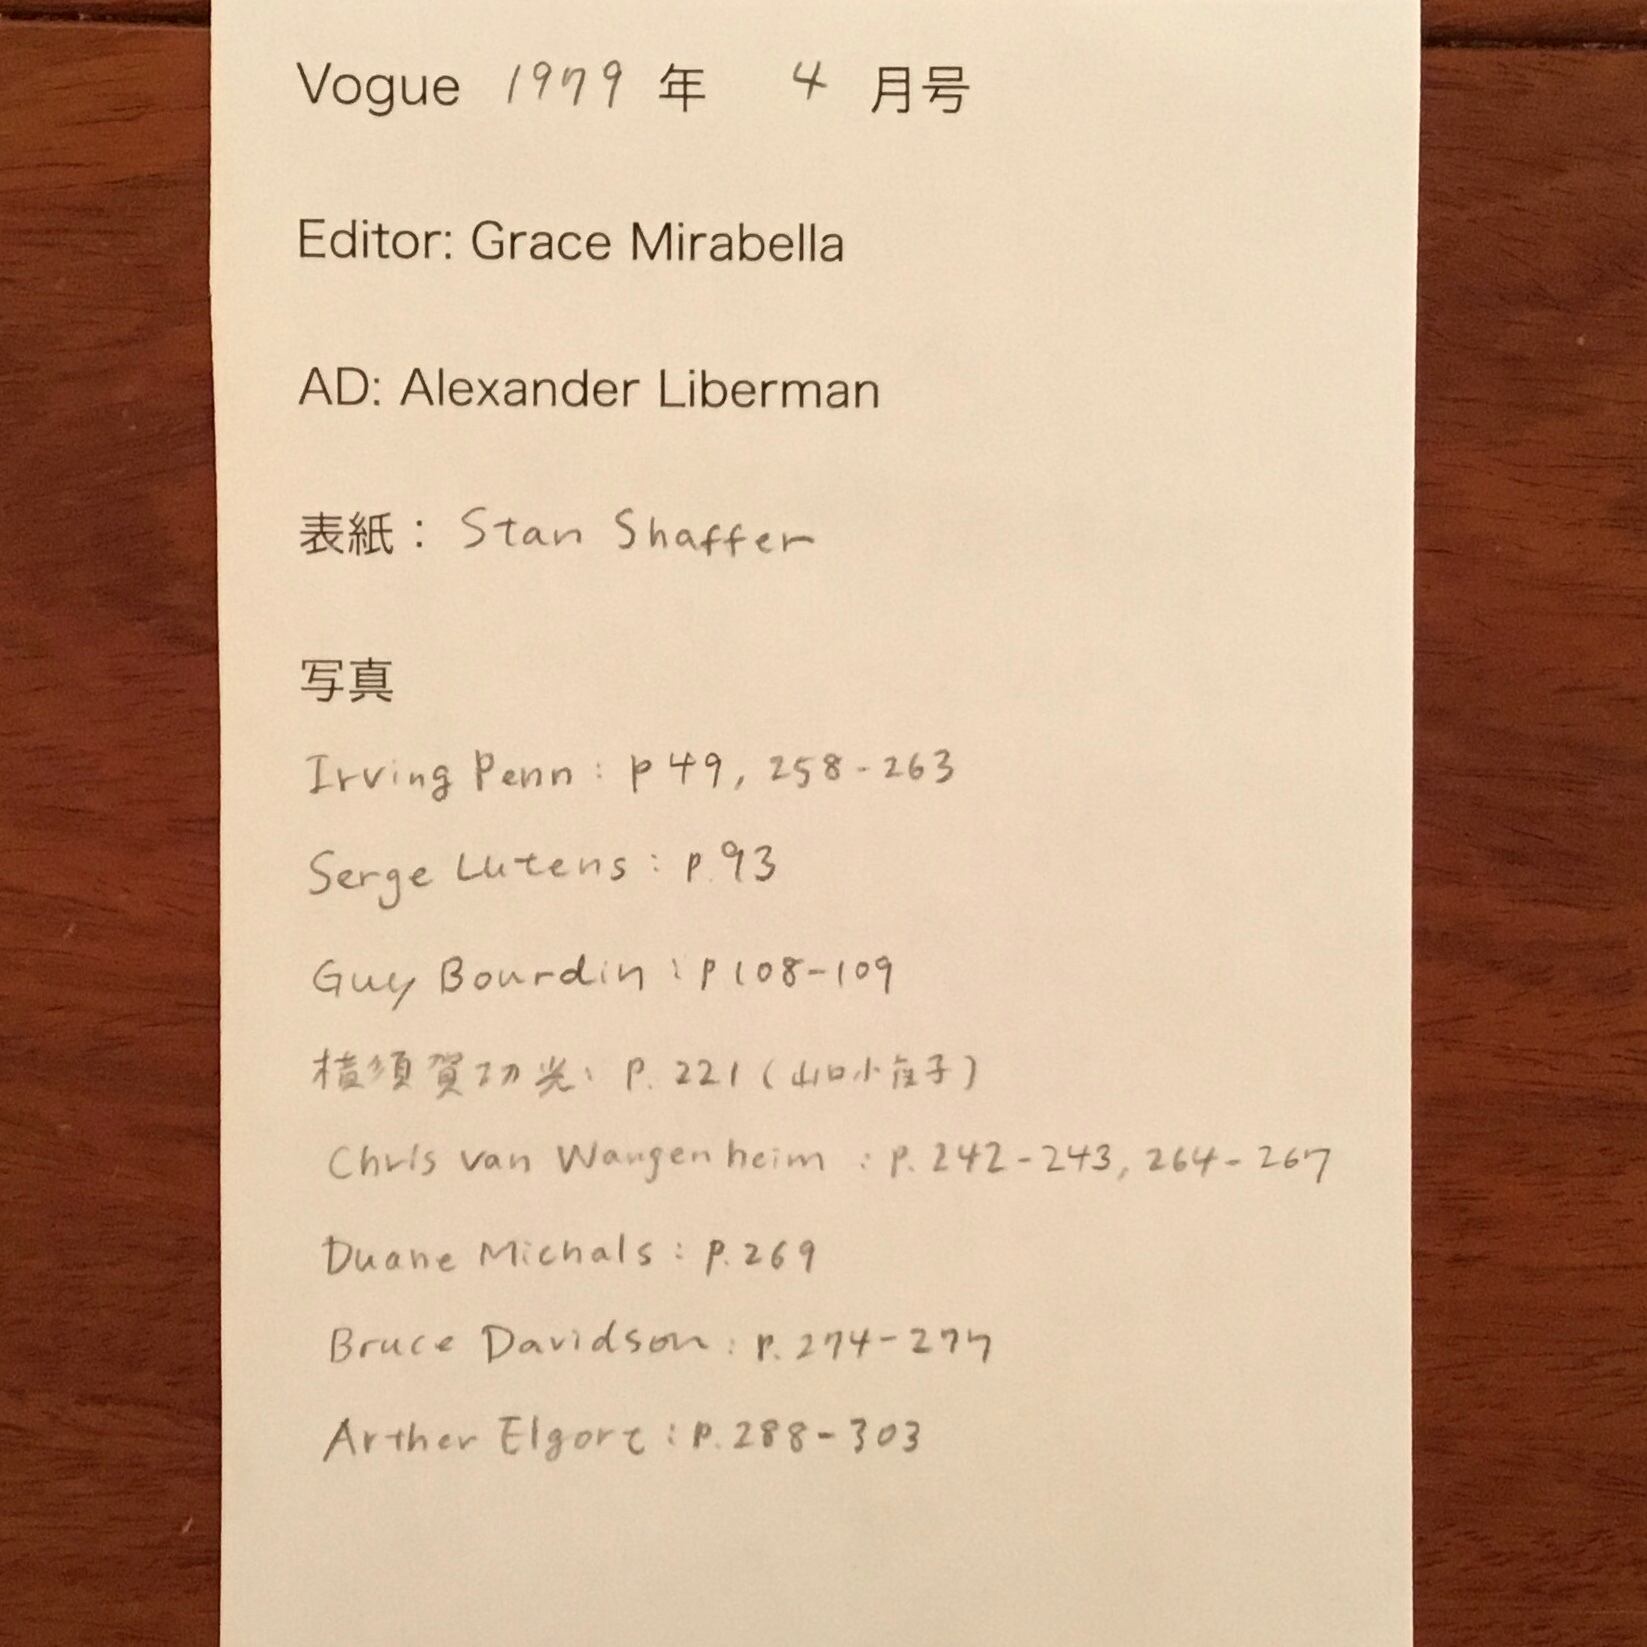 Vogue 1979 年 4 月号
Editor: Grace Mirabella
AD: Alexander Liberman
表紙： Stan Shaffer
写真
Irving Penn : p 49, 258-263
Serge Lutens : p.93
Guy Bourdin : p 108-109
横須賀功光: p. 221 (山口小夜子)
Chris van Wangenheim : p. 242-243, 264-267
Duane Michals : p.269
Bruce Davidson : p. 274-277
Arther Elgort : p. 288-303